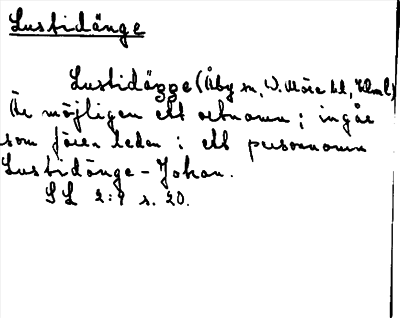 Lustidänge
Lustidägge (Åby sn, N. Möre hd, Klml)
Är möjligen ett ortnamn; ingår
som förra leden i ett personnamn
Lustidänge-Johan.
SL 2:9 s. 20.